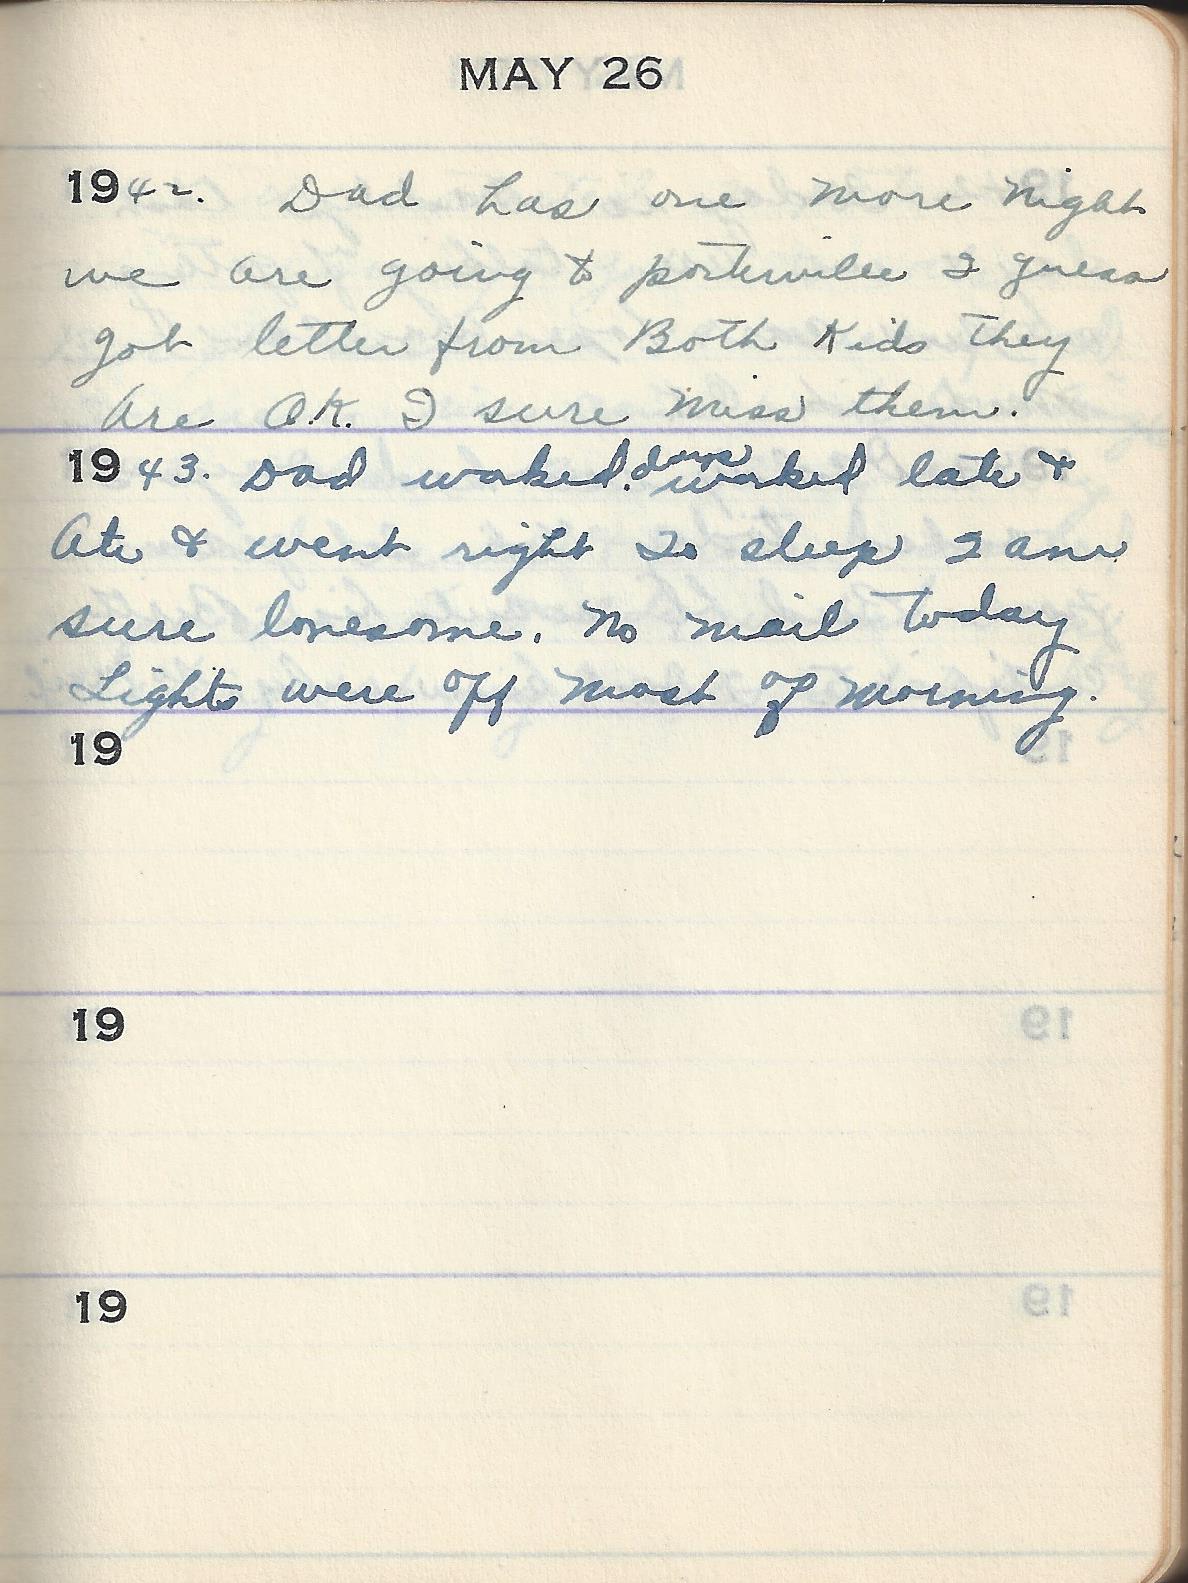 MAY 26
1942. Dad has one more night
we are going to porterville I guess
got letter from Both Kids They
are O.K. I sure miss them.
1943. Dad worked. days worked late &
Ate & went right to sleep I am
sure lonesome. No mail Today
Lights were off most of morning.
19
19
19